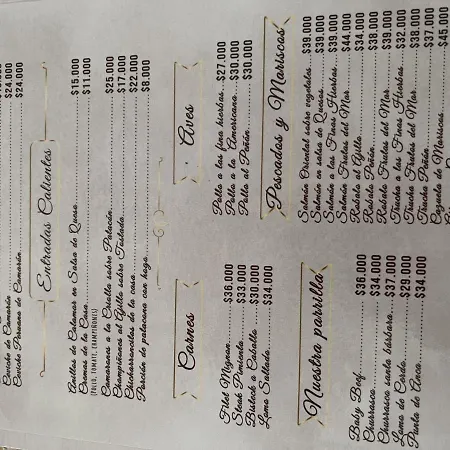 $24.000
Ceviche de Camarón $24.000
Ceviche Peruano de Camarón $24.000
Entradas Calientes
Anillos de Calamar en Salsa de Queso $15.000
Cremas de la Casa $11.000
(POLLO, TOMATE, CHAMPIÑONES)
Camarones a la Criolla sobre Patacón $25.000
Champiñones al Ajillo sobre Tostada $17.000
Chicharroncitos de la casa $22.000
Porción de patacona con hogo $8.000
Carnes
Filet Mignon $36.000
Steak Pimienta $33.000
Bisteck a Caballo $30.000
Lomo Saltado $34.000
Aves
Pollo a las fina hierbas $27.000
Pollo a la Americana $30.000
Pollo al Peñón $30.000
Nuestra parrilla
Baby Beef $36.000
Churrasco $34.000
Churrasco santa bárbara $37.000
Lomo de Cerdo $29.000
Punta de Anca $34.000
Pescados y Mariscos
Salmón Oriental sobre vegetales $39.000
Salmón en salsa de Quesos $39.000
Salmón a las Finas Hierbas $39.000
Salmón Frutos del Mar $44.000
Robalo al Ajillo $34.000
Robalo Peñón $38.000
Robalo Frutos del Mar $39.000
Trucha a las Finas Hierbas $32.000
Trucha Frutos del Mar $38.000
Trucha Peñón $37.000
Cazuela de Mariscos $45.000